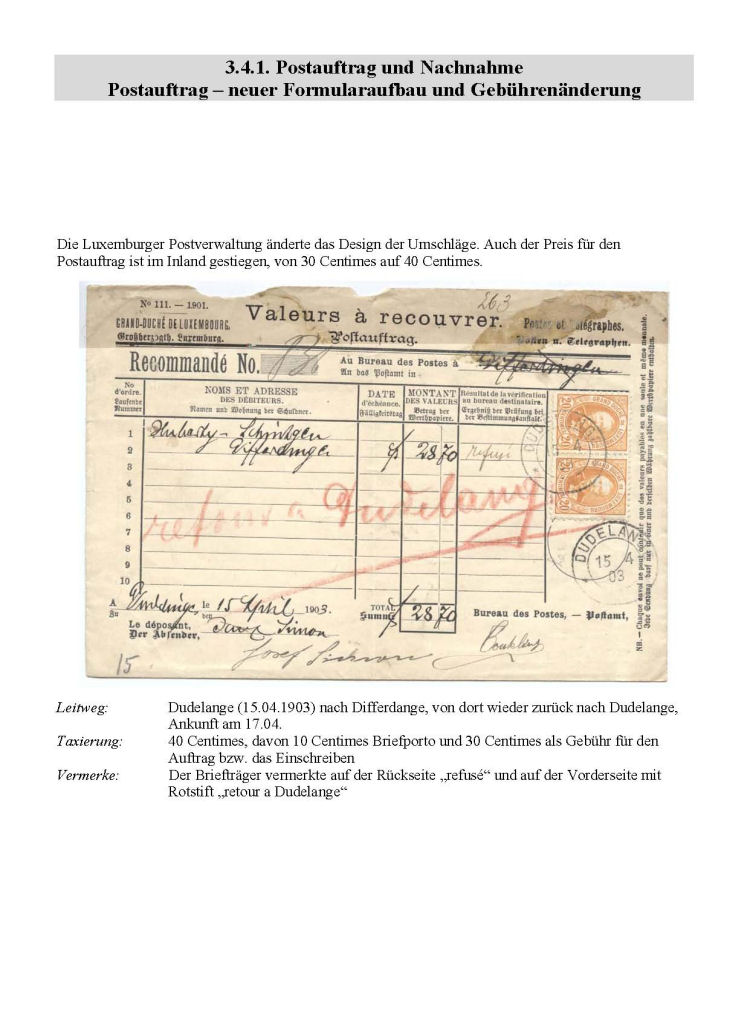 3.4.1. Postauftrag und Nachnahme
Postauftrag – neuer Formularaufbau und Gebührenänderung
Die Luxemburger Postverwaltung änderte das Design der Umschläge. Auch der Preis für den
Postauftrag ist im Inland gestiegen, von 30 Centimes auf 40 Centimes.
No 111. — 1901.
263
Valeurs à recouvrer.
GRAND-DUCHÉ DE LUXEMBOURG.
Postes et Télégraphes.
Großherzogth. Luxemburg.
Postauftrag.
Posten u. Telegraphen.
Recommandé No.
Au Bureau des Postes à Differdingen
An das Postamt in
No d'ordre. Laufende Nummer
NOMS ET ADRESSE DES DÉBITEURS.
Namen und Wohnung der Schuldner.
DATE d'échéance. Fälligkeitstag
MONTANT DES VALEURS Betrag der Werthpapiere.
Résultat de la vérification au bureau destinataire.
Ergebniß der Prüfung bei der Bestimmungsanstalt.
1
2 Differdingen 28 70 refusé
3
4
5
6
retour a Dudelang
7
8
9
10
DUDELANGE
15 4
03
A
Zu
le 15 April 1903.
den
TOTAL
Summe
28 70
Bureau des Postes, — Postamt,
Le déposant,
Der Absender,
Simon
Josef Simon
15
NB. — Chaque envoi ne peut contenir que des valeurs payables en une seule et même monnaie.
Jede Sendung darf nur in einer und derselben Währung zahlbare Werthpapiere enthalten.
Leitweg: Dudelange (15.04.1903) nach Differdange, von dort wieder zurück nach Dudelange,
Ankunft am 17.04.
Taxierung: 40 Centimes, davon 10 Centimes Briefporto und 30 Centimes als Gebühr für den
Auftrag bzw. das Einschreiben
Vermerke: Der Briefträger vermerkte auf der Rückseite „refusé“ und auf der Vorderseite mit
Rotstift „retour a Dudelange“